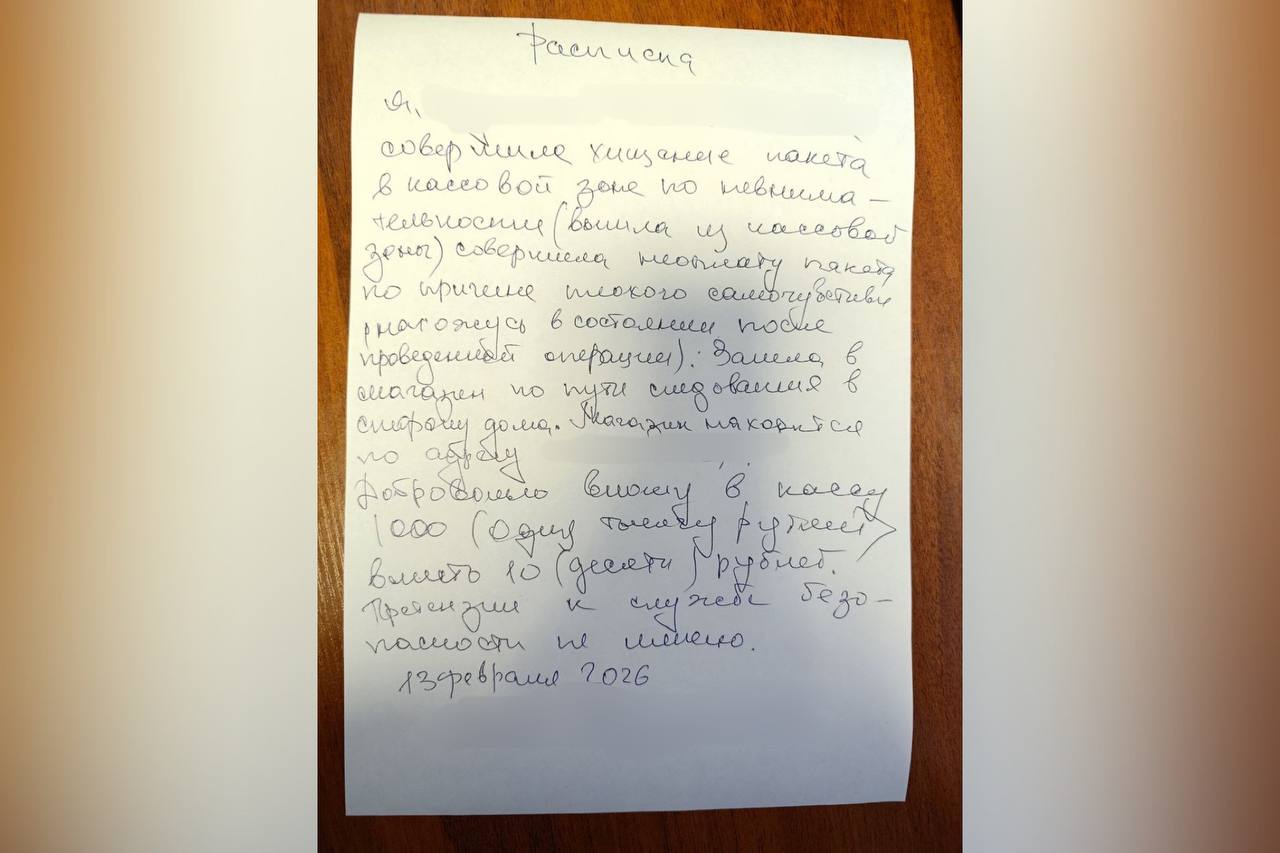 Расписка
Я,
совершила хищение пакета
в кассовой зоне по невнима-
тельности (вышла из кассовой
зоны) совершила неоплату пакета
по причине плохого самочувствия
(нахожусь в состоянии после
проведенной операции). Зашла в
магазин по пути следования в
сторону дома. Магазин находится
по адресу
Добровольно вношу в кассу
1000 (одну тысячу рублей)
вместо 10 (десяти) рублей.
Претензии к службе безо-
пасности не имею.
13 февраля 2026